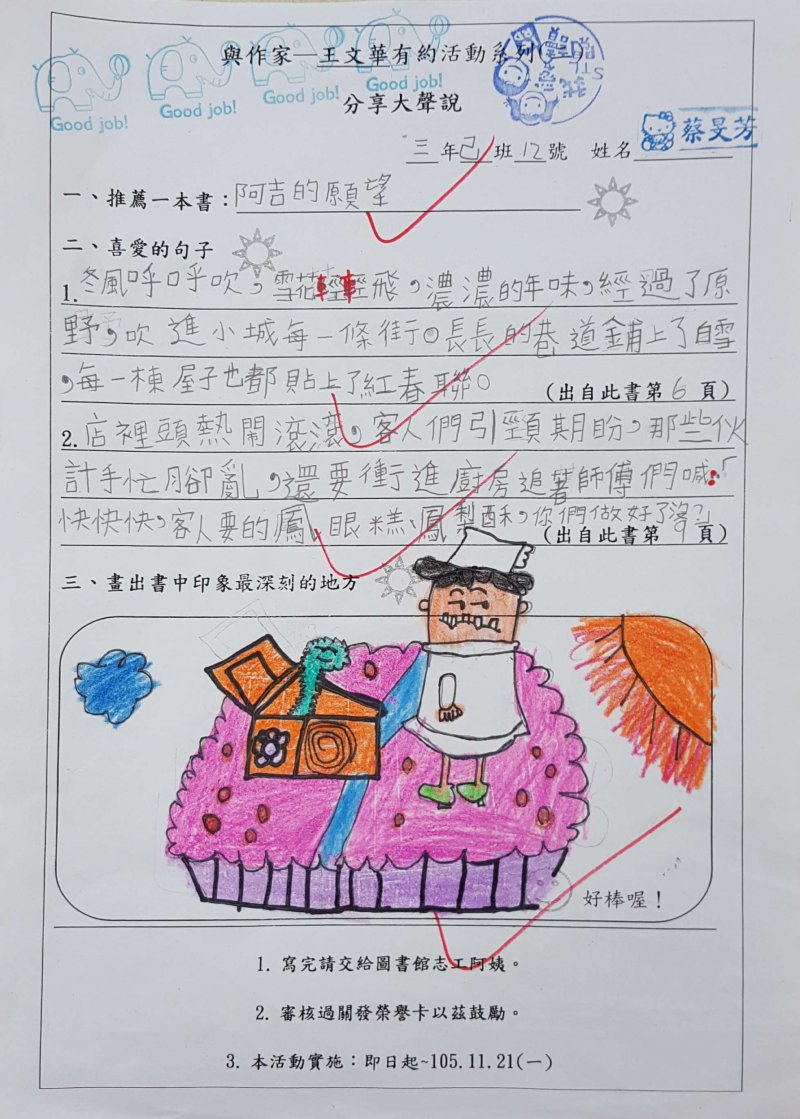 與作家—王文華有約活動系列(二)
Good job! Good job! Good job! Good job!
分享大聲說
三年己班12號 姓名 蔡旻芳
一、推薦一本書：阿吉的願望
二、喜愛的句子
1.冬風呼呼吹，雪花輕輕飛，濃濃的年味，經過了原
野，吹進小城每一條街。長長的巷道鋪上了白雪
，每一棟屋子也都貼上了紅春聯。(出自此書第6頁)
2.店裡頭熱鬧滾滾，客人們引頸期盼，那些伙
計手忙腳亂，還要衝進廚房追著師傅們喊：「
快快快，客人要的鳳眼糕、鳳梨酥，你們做好了沒？」
(出自此書第9頁)
三、畫出書中印象最深刻的地方
好棒喔！
1. 寫完請交給圖書館志工阿姨。
2. 審核過關發榮譽卡以茲鼓勵。
3. 本活動實施：即日起~105.11.21(一)